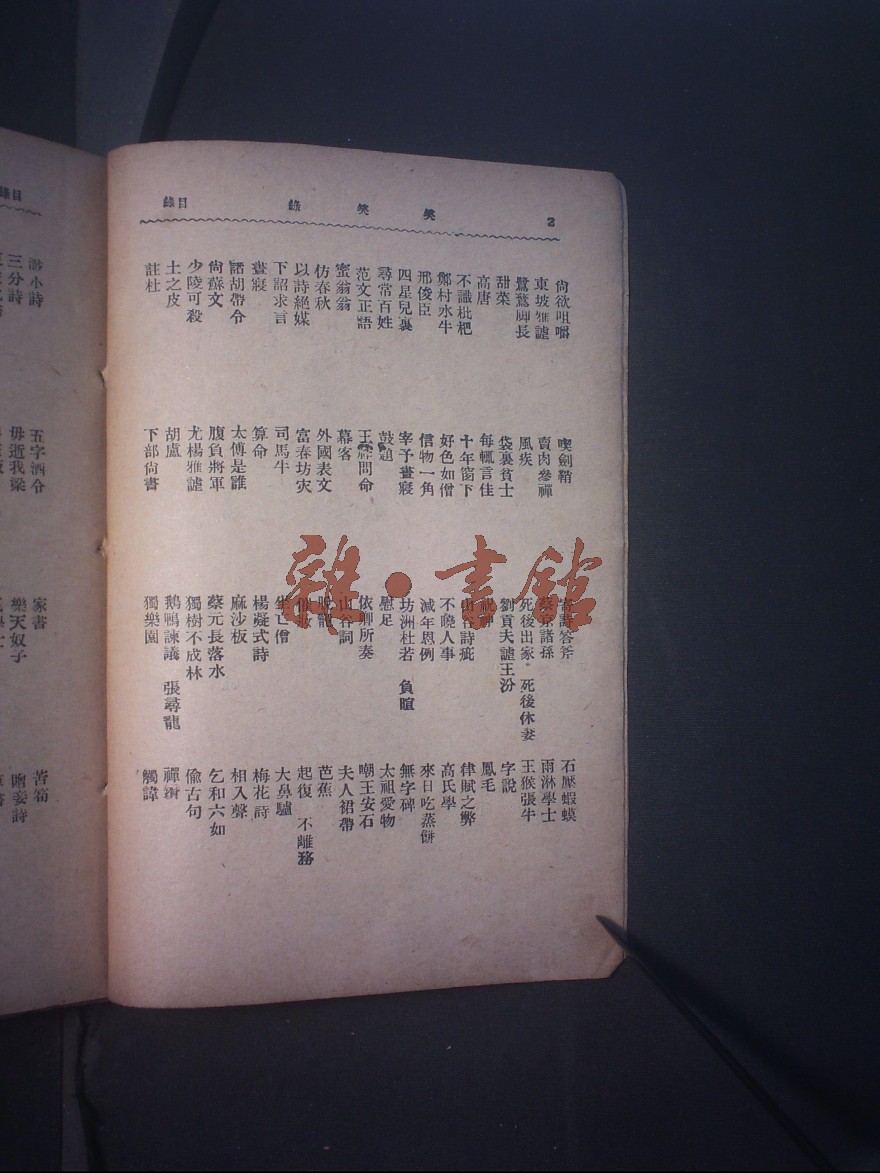 2 笑笑錄 目錄
尙欲咀嚼
東坡雅謔
鷺鷥脚長
甜菜
高唐
不識枇杷
鄭村水牛
邢俊臣
四星兒裏
尋常百姓
范文正語
蜜翁翁
仿春秋
以詩絕媒
下詔求言
晝寢
諧胡帶令
尙蘇文
少陵可殺
土之皮
註杜
喫劍鞘
賣肉參禪
風疾
袋裏貧士
每輒言佳
十年窗下
好色如僧
信物一角
宰予晝寢
鼓題
王問命
幕客
外國表文
富春坊灾
司馬牛
算命
太傅是誰
腹負將軍
尤楊雅謔
胡盧
下部尙書
寄書答斧
蔡京諸孫
死後出家 死後休妻
劉貢夫謔王汾
祝神
山谷詩疵
不曉人事
減年恩例
坊洲杜若 負暄
慰足
依卿所奏
山谷詞
脫籠
催妝
坐亡僧
楊凝式詩
麻沙板
蔡元長落水
獨樹不成林
鵝鴨諫議 張尋龍
獨樂園
石壓蝦蟆
雨淋學士
王猴張牛
字說
鳳毛
律賦之弊
高氏學
來日吃蒸餅
無字碑
太祖愛物
嘲王安石
夫人裙帶
芭蕉
起復 不離務
大鼻驢
梅花詩
相入聲
乞和六如
偸古句
禪
觸諱
目錄
小詩
三分詩
五字酒令
毋逝我梁
家書
樂天奴子
苦筍
贈妾詩
雜·書館